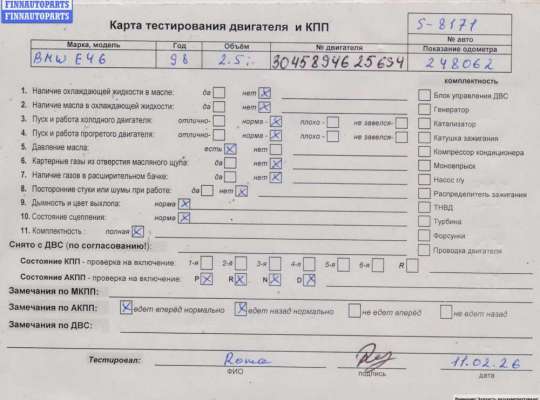 FINNAUTOPARTS
FINNAUTOPARTS
Карта тестирования двигателя и КПП
S-8171
№ авто
Марка, модель Год Объём № двигателя Показание одометра
BMW E46 98 2.5i 30458946 256S4 248062
комплектность
1. Наличие охлаждающей жидкости в масле: да нет
2. Наличие масла в охлаждающей жидкости: да нет
3. Пуск и работа холодного двигателя: отлично- норма - плохо - не завелся-
4. Пуск и работа прогретого двигателя: отлично- норма - плохо - не завелся-
5. Давление масла: есть нет
6. Картерные газы из отверстия масляного щупа: да нет
7. Наличие газов в расширительном бачке: да нет
8. Посторонние стуки или шумы при работе: да нет
9. Дымность и цвет выхлопа: норма
10. Состояние сцепления: норма
11. Комплектность : полная
Блок управления ДВС
Генератор
Катализатор
Катушка зажигания
Компрессор кондиционера
Моновпрыск
Насос г/у
Распределитель зажигания
ТНВД
Турбина
Форсунки
Проводка двигателя
Снято с ДВС (по согласованию!):
Состояние КПП - проверка на включение: 1-я 2-я 3-я 4-я 5-я 6-я R
Состояние АКПП - проверка на включение: P R N D
Замечания по МКПП:
Замечания по АКПП: едет вперёд нормально едет назад нормально не едет вперёд не едет назад
Замечания по ДВС:
Тестировал: Roma 11.02.26
ФИО подпись дата